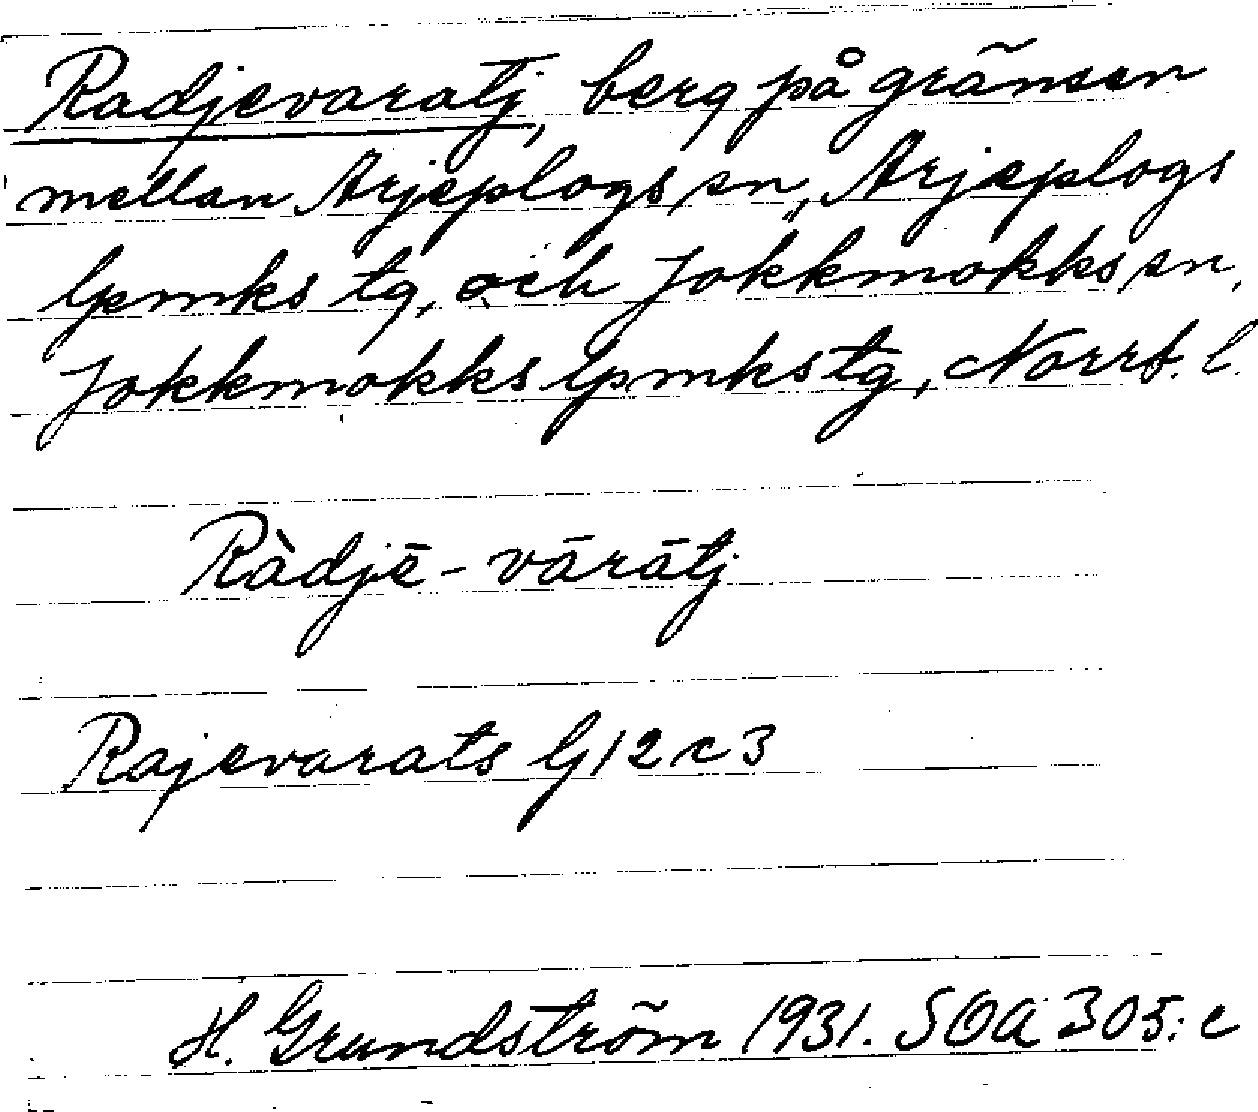 Radjevaratj, berg på gränsen
mellan Arjeplogs sn, Arjeplogs
lpmks tg, och Jokkmokks sn,
Jokkmokks lpmks tg, Norrb. l.
Ràdjē-vāràtj
Rajevarats Gj 12 c 3
H. Grundström 1931. SOA 305:c